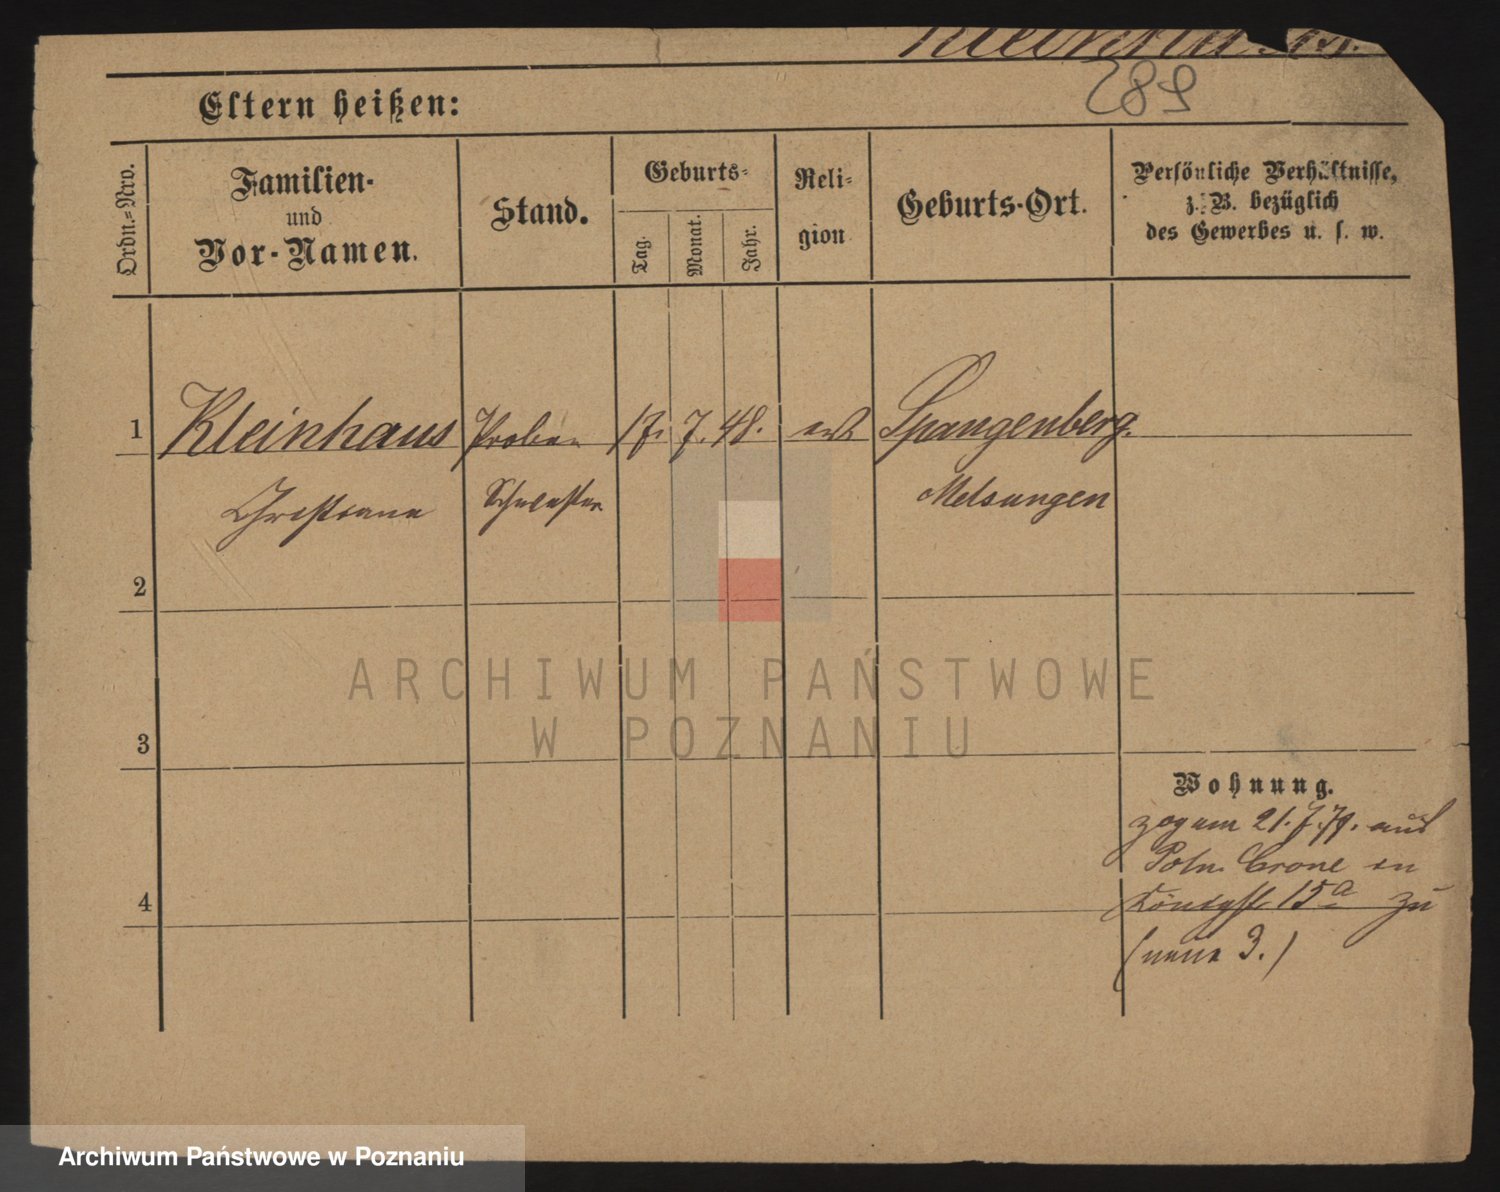 Kleinhaus
289
Eltern heißen:
Ordn.=Nro.
Familien-
und
Vor-Namen.
Stand.
Geburts-
Tag.
Monat.
Jahr.
Reli-
gion
Geburts-Ort.
Persönliche Verhältnisse,
z. B. bezüglich
des Gewerbes u. s. w.
1 Kleinhaus Probe- 17. 7. 48. Spangenberg.
Christiane Schwester Melsungen
2
3
Wohnung.
zog am 21. 7. 79. aus
Poln. Crone in
4 Königstr. 15a zu
(neue 3.)
ARCHIWUM PAŃSTWOWE
W POZNANIU
Archiwum Państwowe w Poznaniu